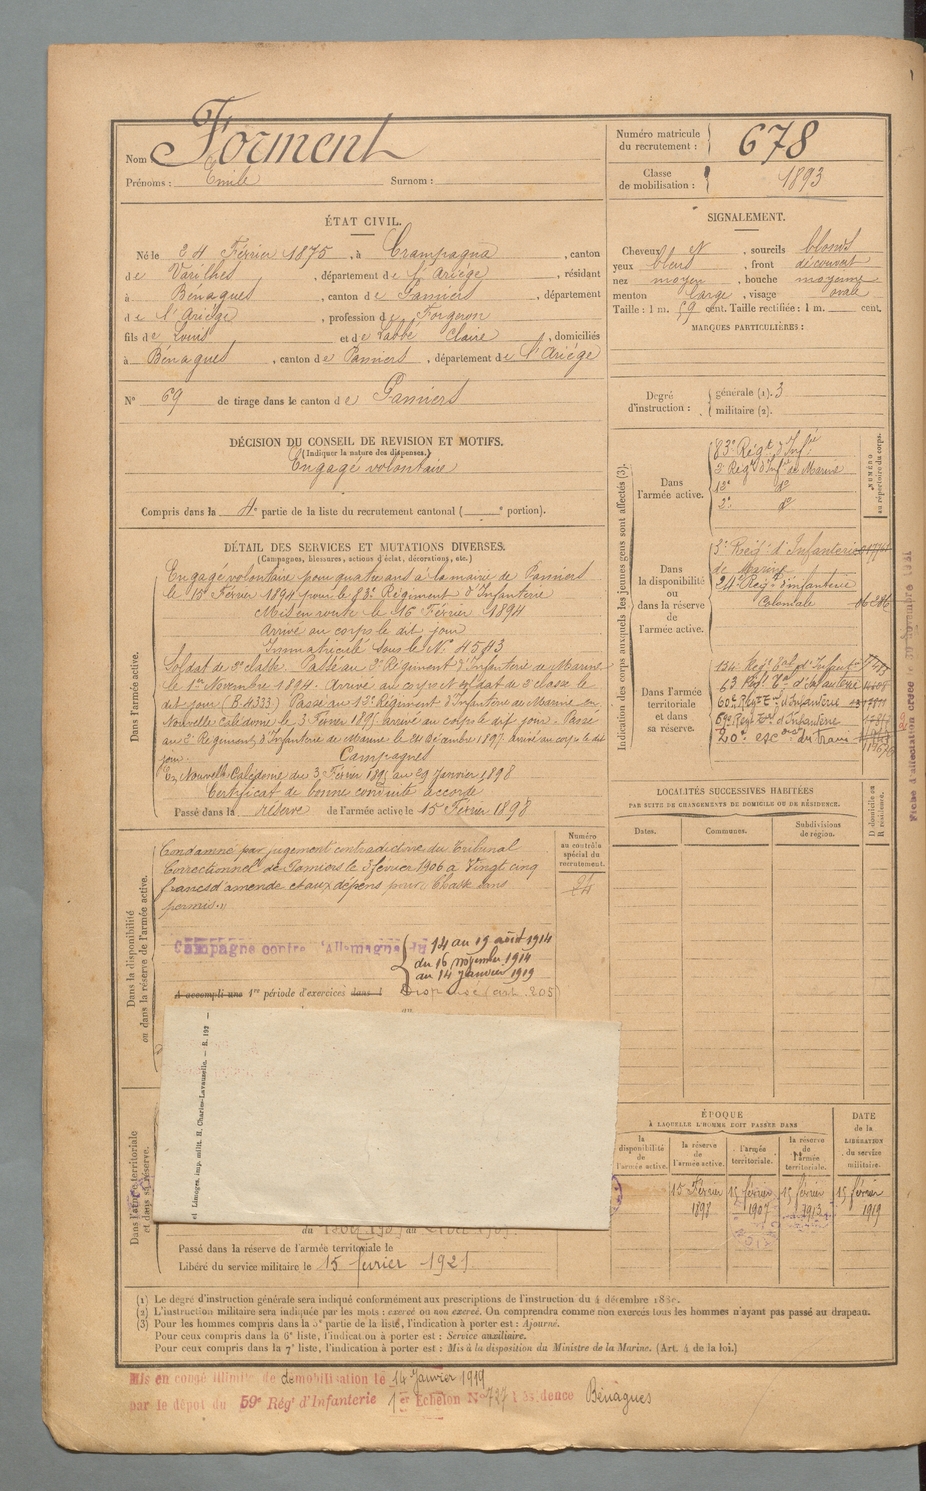 Nom Forment
Prénoms : Emile Surnom :
Numéro matricule du recrutement : 678
Classe de mobilisation : 1893
ÉTAT CIVIL.
Né le 24 Février 1875, à Crampagna, canton
de Varilhes, département de l'Ariége, résidant
à Bénagues, canton de Pamiers, département
de l'Ariége, profession de Forgeron
fils de Louis et de Labbé Claire, domiciliés
à Bénagues, canton de Pamiers, département de l'Ariége
N° 69 de tirage dans le canton de Pamiers
SIGNALEMENT.
Cheveux et, sourcils blonds
yeux bleus, front découvert
nez moyen, bouche moyenne
menton large, visage ovale
Taille : 1 m. 59 cent. Taille rectifiée : 1 m. cent.
MARQUES PARTICULIÈRES :
Degré d'instruction :
générale (1). 3
militaire (2).
DÉCISION DU CONSEIL DE REVISION ET MOTIFS.
(Indiquer la nature des dispenses.)
Engagé volontaire
Compris dans la 4e partie de la liste du recrutement cantonal ( e portion).
DÉTAIL DES SERVICES ET MUTATIONS DIVERSES.
(Campagnes, blessures, actions d'éclat, décorations, etc.)
Dans l'armée active.
Engagé volontaire pour quatre ans à la mairie de Pamiers
le 15 Février 1894 pour le 83e Régiment d'Infanterie
Mis en route le 16 Février 1894
Arrivé au corps le dit jour
Immatriculé sous le N° 4583
Soldat de 2e classe. Passé au 3e Régiment d'Infanterie de Marine
le 1er Novembre 1894. Arrivé au corps et soldat de 2e classe le
dit jour (B.4333) Passé au 13e Régiment d'Infanterie de Marine en
Nouvelle Calédonie le 3 Février 1895 arrivé au corps le dit jour. Passé
au 2e Régiment d'Infanterie de Marine le 24 Décembre 1897 arrivé au corps le dit
jour.
Campagnes
En Nouvelle Calédonie du 3 Février 1895 au 29 Janvier 1898
Certificat de bonne conduite accordé
Passé dans la réserve de l'armée active le 15 Février 1898
Indication des corps auxquels les jeunes gens sont affectés (3).
NUMÉRO au répertoire du corps.
Dans l'armée active.
83e Régt d'Infie
2e Régt d'Infie de Marine
13e do
2e do
Dans la disponibilité ou dans la réserve de l'armée active.
3e Régt d'Infanterie
de Marine
24e Régt d'infanterie
Coloniale
Dans l'armée territoriale et dans sa réserve.
134 Régt Tal d'Infant
63 Régt Tal d'Infanterie
60e Régt Tal d'Infanterie
Régt Tal d'Infanterie
20e esc
LOCALITÉS SUCCESSIVES HABITÉES
PAR SUITE DE CHANGEMENTS DE DOMICILE OU DE RÉSIDENCE.
Dates. Communes. Subdivisions de région.
D domicile ou R résidence.
Fiche d'affectation créée le 30 novembre
Dans la disponibilité ou dans la réserve de l'armée active.
Numéro au contrôle spécial du recrutement.
Condamné par jugement contradictoire du Tribunal
Correctionnel de Pamiers le 3 février 1906 à Vingt cinq
francs d'amende et aux dépens pour Chasse sans
permis.
Campagne contre l'Allemagne du 14 au 19 août 1914
du 16 novembre 1914
au 14 Janvier 1919
A accompli une 1re période d'exercices dans l Dispensé (art. 205)
au
Limoges, imp. milit. H. Charles-Lavauzelle. — R. 197
ÉPOQUE
À LAQUELLE L'HOMME DOIT PASSER DANS
la disponibilité de l'armée active.
la réserve de l'armée active.
l'armée territoriale.
la réserve de l'armée territoriale.
DATE de la LIBÉRATION du service militaire.
15 Février 1898
15 février 1907
15 février 1913
15 février 1919
Dans l'armée territoriale et dans sa réserve.
Passé dans la réserve de l'armée territoriale le
Libéré du service militaire le 15 février 1921
(1) Le degré d'instruction générale sera indiqué conformément aux prescriptions de l'instruction du 4 décembre 1889.
(2) L'instruction militaire sera indiquée par les mots : exercé ou non exercé. On comprendra comme non exercés tous les hommes n'ayant pas passé au drapeau.
(3) Pour les hommes compris dans la 5e partie de la liste, l'indication à porter est : Ajourné.
Pour ceux compris dans la 6e liste, l'indication à porter est : Service auxiliaire.
Pour ceux compris dans la 7e liste, l'indication à porter est : Mis à la disposition du Ministre de la Marine. (Art. 4 de la loi.)
Mis en congé illimité de démobilisation le 14 Janvier 1919
par le dépôt du 59e Régt d'Infanterie 1er Echelon N° 727 Résidence Bénagues